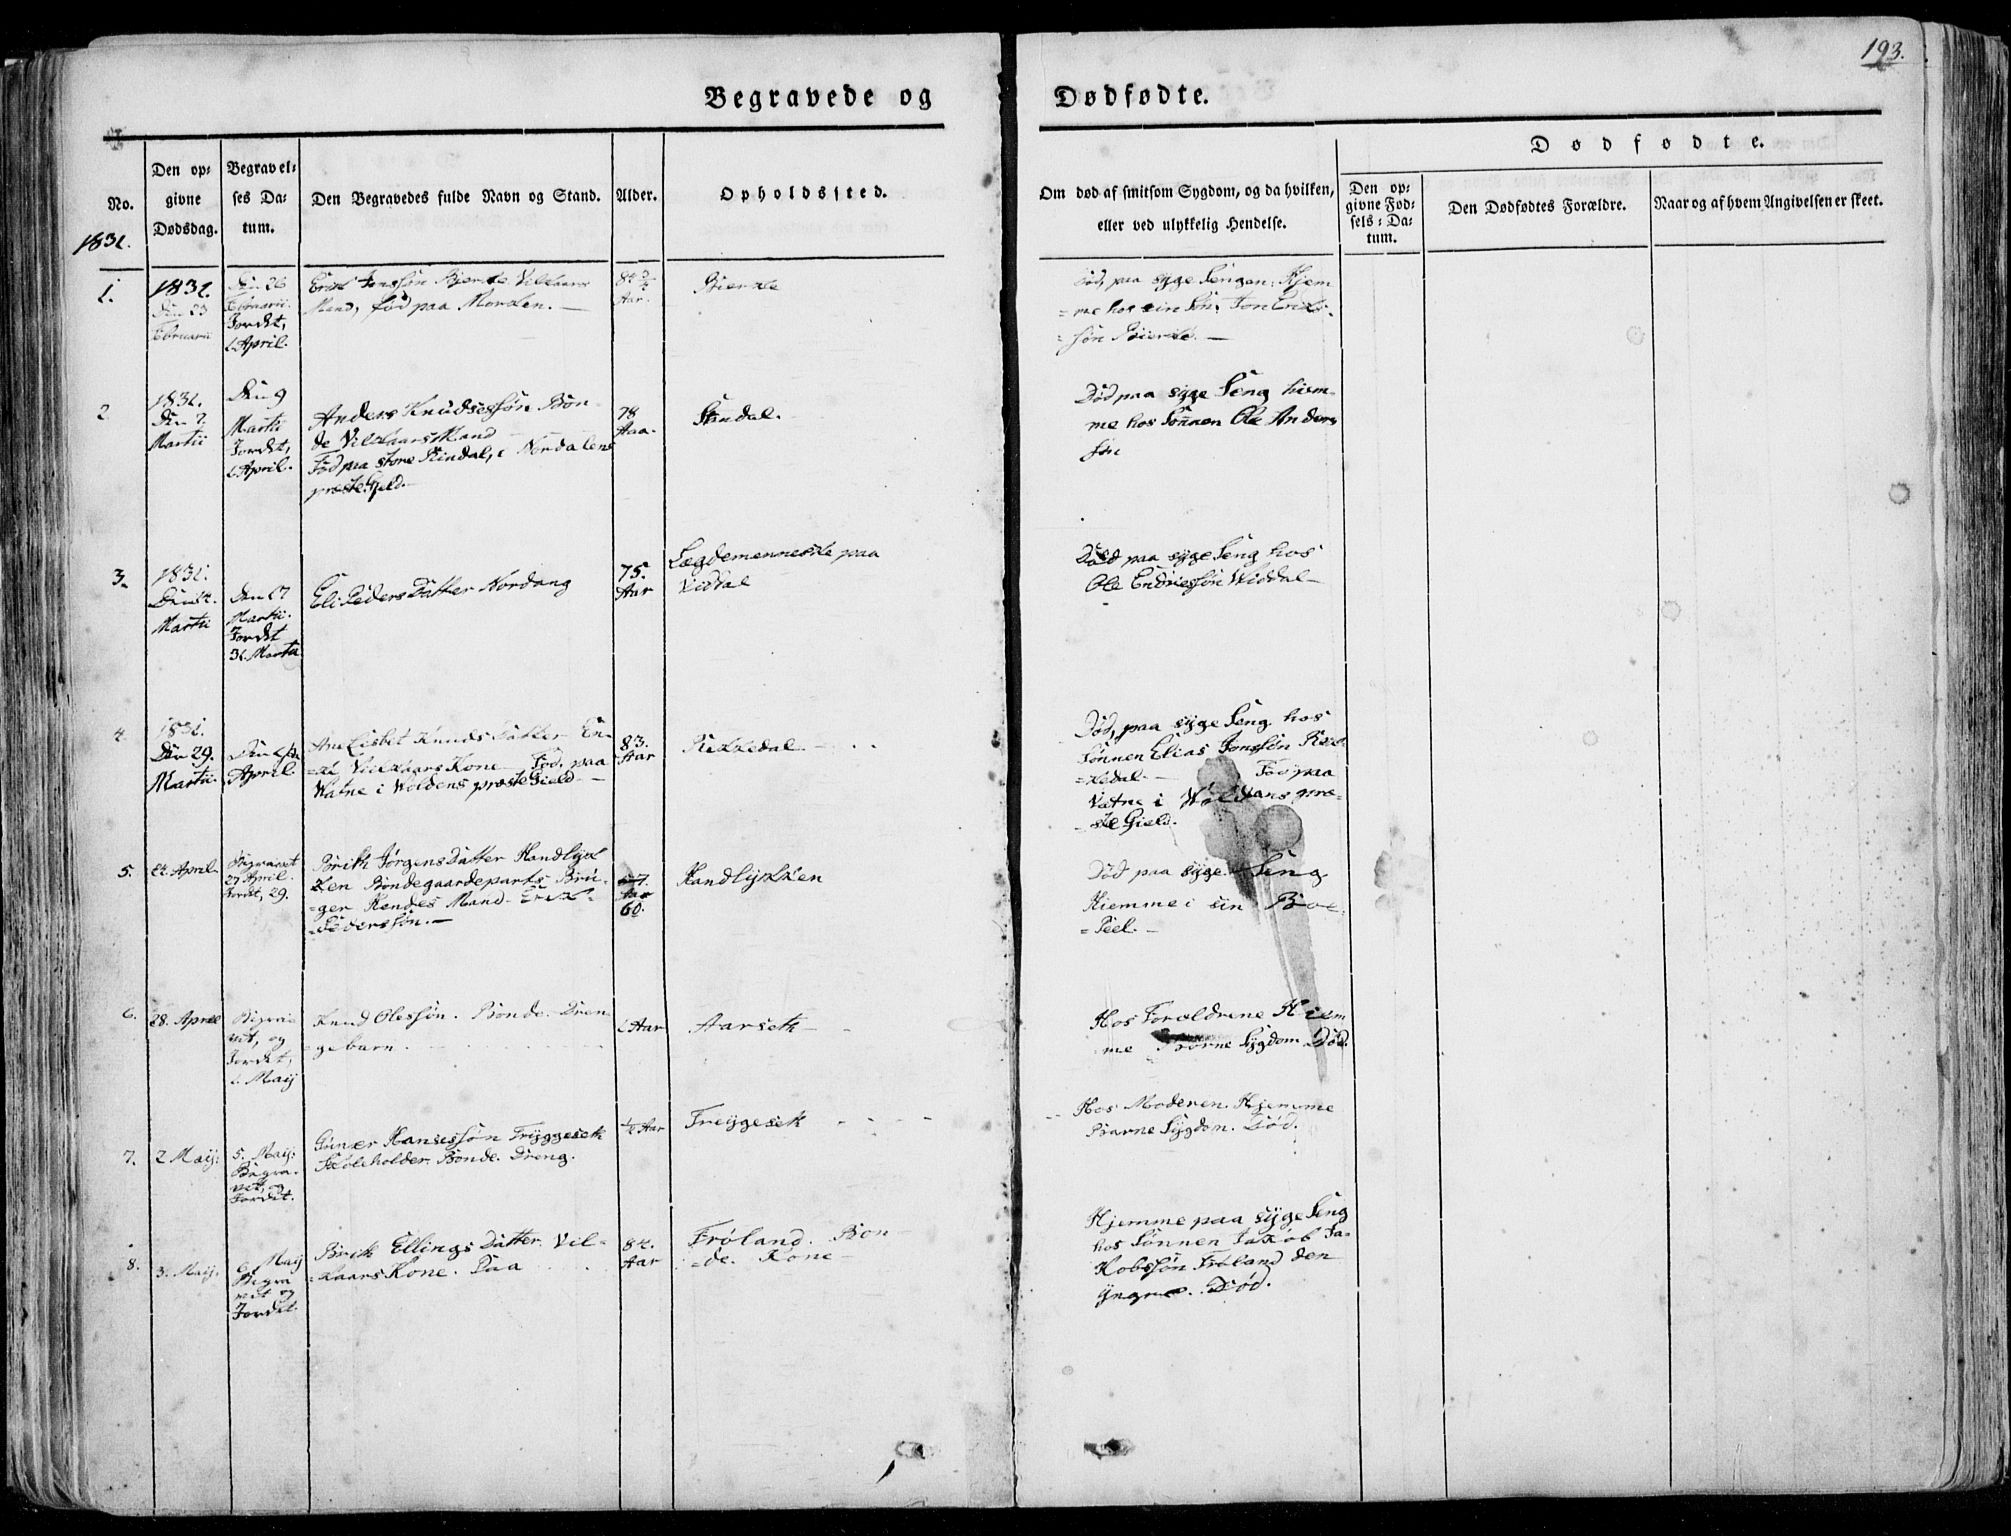 193.
Begravede og Dødfødte.
Dødfødte.
No.
Den op-
givne
Dødsdag.
Begravel-
ses Da-
tum.
Den Begravedes fulde Navn og Stand.
Alder.
Opholdssted.
Om død af smitsom Sygdom, og da hvilken,
eller ved ulykkelig Hendelse.
Den op-
givne Fød-
sels-Da-
tum.
Den Dødfødtes Forældre.
Naar og af hvem Angivelsen er skeet.
1831.
1.
1831.
Den 23
Februarii
Den 26
Februarii
Jordet,
1. April.
Erik Jonssøn Bjerke Vilkaars
Mand, fød paa Morken.
84
Aar.
Bierke
Død, paa syge Sengen, Hjem
=me hos sin Søn, Jon Erik-
=søn Bierke.
2
1831.
Den 7.
Martii
Den 9
Martii
Jordet,
1. April.
Anders Knudsessøn Bon-
de Vilkaars Mand
Fød paa store Rindal, i Nordalens
præste Gjeld.
78
Aar.
Død paa syge Seng hiem-
me hos Sønnen Ole Anders
søn
3.
1831.
Martii
Den 27
Martii.
Jordet
31. Martii
Eli Peders Datter Nordang
75.
Aar
Lægdemenneske paa
Viddal
Død paa syge Seng hos
Ole Endressøn Widdal
4.
1831.
Den 29.
Martii.
April
Ane Lisbet Knuds Datter En-
=ke, Vielkaars Kone Fød, paa
Watne i Woldens præste Gield
83.
Aar
Rekkedal
Død, paa syge Seng hos
Sønnen Elias Jonssøn Rek-
=kedal. Fød paa
Vatne i Woldens præ=
=ste Gield.
5.
24. April.
Begravet
27 April.
Jordet, 29.
Brith Jørgens Datter Handlyk
ken Bondegaardeparts Brü-
=ger Hendes Mand Erik
=Pedersøn.
67.
Aar
60.
Handlykken
Død paa syge Seng
Hiemme i sin Boe=
=Peel.
6.
28. April
Begrave
vet, og
Jordet,
1. Maij
Knud Olessøn. Bonde. Dren
=gebarn
1 Aar
Aarseth
Hos Forældrene Hiem
me Barne Sygdom Død.
7.
2 Maij:
5. Maij:
Begra-
vet, og
Jordet.
Gunner Hansessøn Fryggeseth
Skoleholder. Bonde. Dreng.
½ Aar
Freygeseth
Hos Moderen. Hjemme
Barne Sygdom. Død.
8.
3. Maij.
6. Maij
Begra
vet og
Jordet.
Brith Ellings Datter. Vil-
=kaars Kone. Paa
84.
Aar
Frøland. Bon-
=de. Kone
Hjemme paa syge Seng
hos Sønnen Jakob Ja-
Kobssøn Frøland den
yngre. Død.